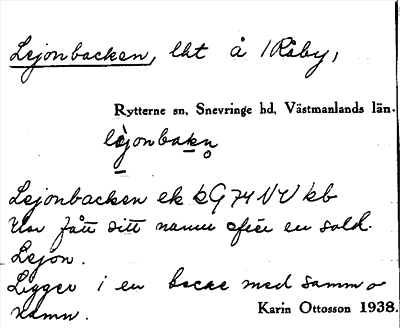 Lejonbacken, lht å Råby,
Rytterne sn, Snevringe hd, Västmanlands län.
Lejonbacken ek kG 74 NV kb
Har fått sitt namn efter en sold.
Lejon.
Ligger i en backe med samma
namn.
Karin Ottosson 1938.